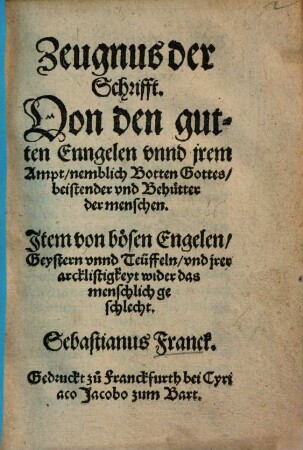 Zeugnus der
Schrifft.
Von den gut-
ten Enngelen vnnd jrem
Ampt/nemblich Botten Gottes/
beistender vnd Behütter
der menschen.
Jtem von bösen Engelen/
Geystern vnnd Teüffeln/vnd jrer
arcklistigkeyt wider das
menschlich ge
schlecht.
Sebastianus Franck.
Gedruckt zů Franckfurth bei Cyri
aco Jacobo zum Bart.